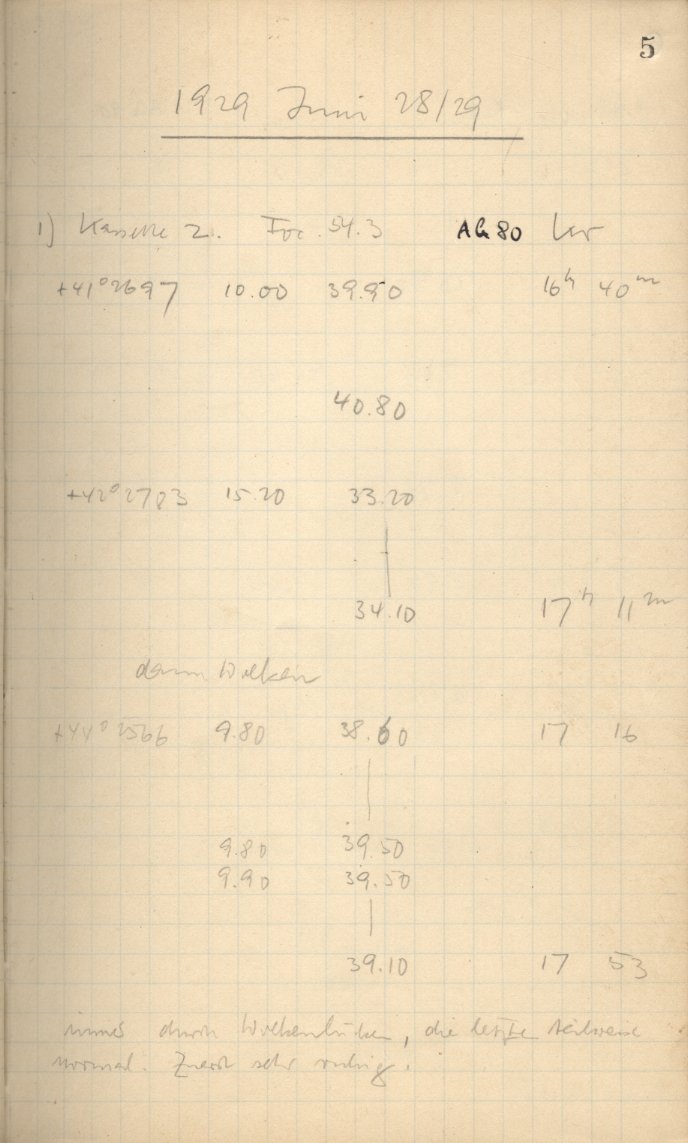 5
1929 Juni 28/29
1) Kassette 2. Foc. 54.3 AG 80
+41° 2697 10.00 39.90 16h 40m
40.80
+42° 2783 15.20 33.20
34.10 17h 11m
dann Wolken
+44° 2566 9.80 38.60 17 16
9.80 39.50
9.90 39.50
39.10 17 53
immer durch Wolkenlücken, die letzte teilweise
normal. Zuerst sehr ruhig.